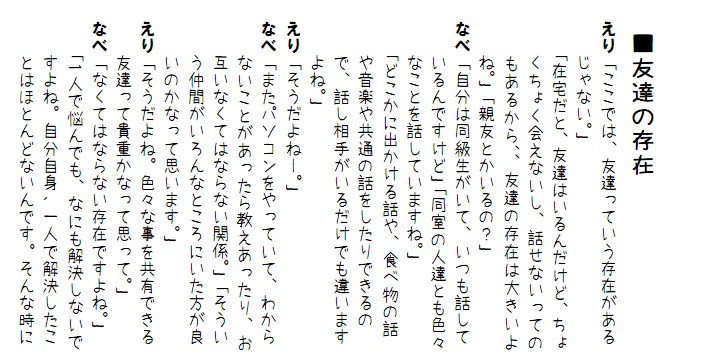 ■友達の存在
えり「ここでは、友達っていう存在がある
じゃない。」
「在宅だと、友達はいるんだけど、ちょ
くちょく会えないし、話せないっての
もあるから、、友達の存在は大きいよ
ね。」「親友とかいるの？」
なべ「自分は同級生がいて、いつも話して
いるんですけど」「同室の人達とも色々
なことを話していますね。」
「どこかに出かける話や、食べ物の話
や音楽や共通の話をしたりできるの
で、話し相手がいるだけでも違います
よね。」
えり「そうだよねー。」
なべ「またパソコンをやっていて、わから
ないことがあったら教えあったり、お
互いなくてはならない関係。」「そうい
う仲間がいろんなところにいた方が良
いのかなって思います。」
えり「そうだよね。色々な事を共有できる
友達って貴重かなって思って。」
なべ「なくてはならない存在ですよね。」
「一人で悩んでも、なにも解決しないで
すよね。自分自身、一人で解決したこ
とはほとんどないんです。そんな時に